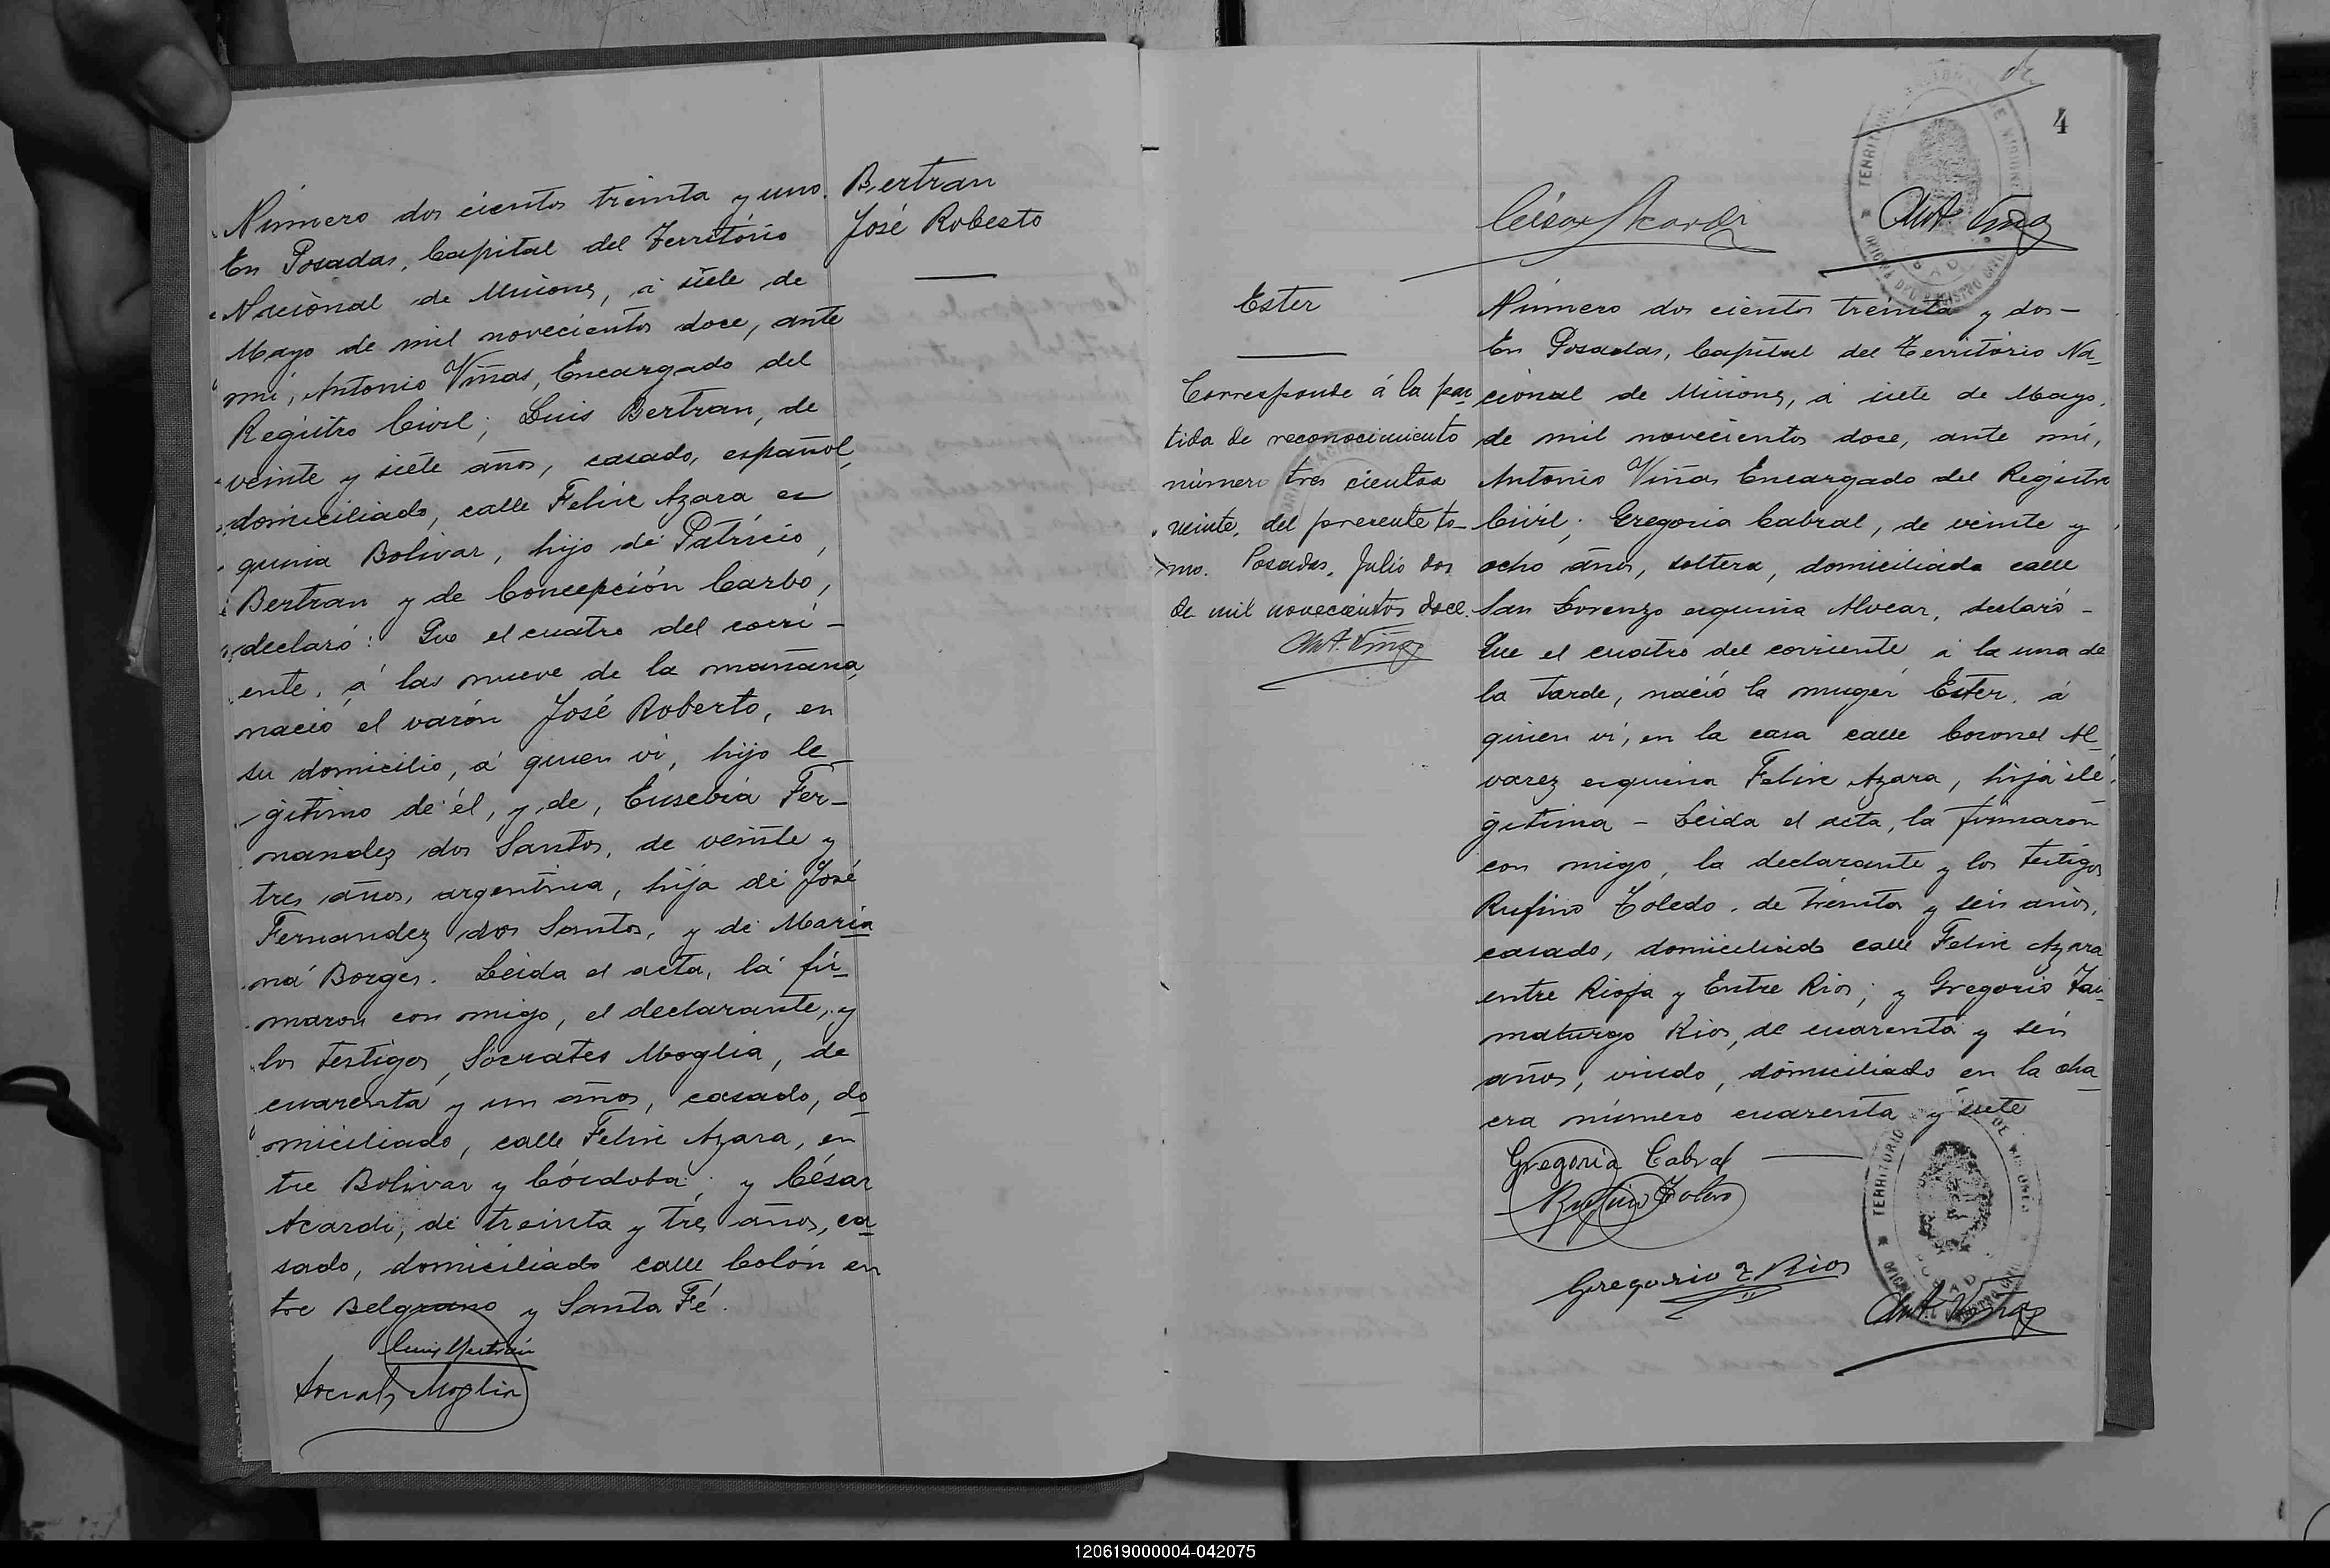 Número dos cientos treinta y uno.
En Posadas, Capital del Território
Nacional de Misiones, á siete de
Mayo de mil novecientos doce, ante
mi, Antonio Viñas, Encargado del
Registro Civil; Luis Bertran, de
veinte y siete años, casado, español,
domiciliado, calle Felix Azara es
quina Bolivar, hijo de Patricio,
Bertran y de Concepción Carbo,
declaró: Que el cuatro del corri-
ente, á las nueve de la mañana,
nació el varón José Roberto, en
su domicilio, á quien vi, hijo le
gitimo de él, y de, Eusebia Fer-
nandez dos Santos, de veinte y
tres años, argentina, hija de José
Fernandez dos Santos, y de Maria
na Borges. Leida el acta, la fir
maron con migo, el declarante, y
los testigos, Sócrates Moglia, de
cuarenta y un años, casado, do
miciliado, calle Felix Azara, en
tre Bolivar y Córdoba; y César
Acardi, de treinta y tres años, ca
sado, domiciliado calle Colón en
tre Belgrano y Santa Fé.
Luis Bertrán
Socrates Moglia
Bertran
José Roberto
4
César Acardi
Ant. Viñas
Ester
Corresponde á la par
tida de reconocimiento
número tres cientos
veinte, del presente to-
mo. Posadas, Julio dos
de mil novecientos doce.
Ant. Viñas
Número dos cientos treinta y dos-
En Posadas, Capital del Território Na
cional de Misiones, á siete de Mayo,
de mil novecientos doce, ante mi,
Antonio Viñas Encargado del Registro
Civil; Gregoria Cabral, de veinte y
ocho años, soltera, domiciliada calle
San Lorenzo esquina Alvear, declaró-
Que el cuatro del corriente á la una de
la tarde, nació la muger Ester, á
quien vi, en la casa calle Coronel Al
varez esquina Felix Azara, hija ile
gitima - Leida el acta, la firmaron
con migo, la declarante y los testigos
Rufino Toledo, de treinta y seis años,
casado, domiciliado calle Felix Azara
entre Rioja y Entre Rios; y Gregorio Tau
maturgo Rios, de cuarenta y seis
años, viudo, domiciliado en la cha
cra número cuarenta y siete
Gregoria Cabral
Rufino Toledo
Gregorio T Rios
TERRITORIO DE MISIONES
Ant. Viñas
120619000004-042075